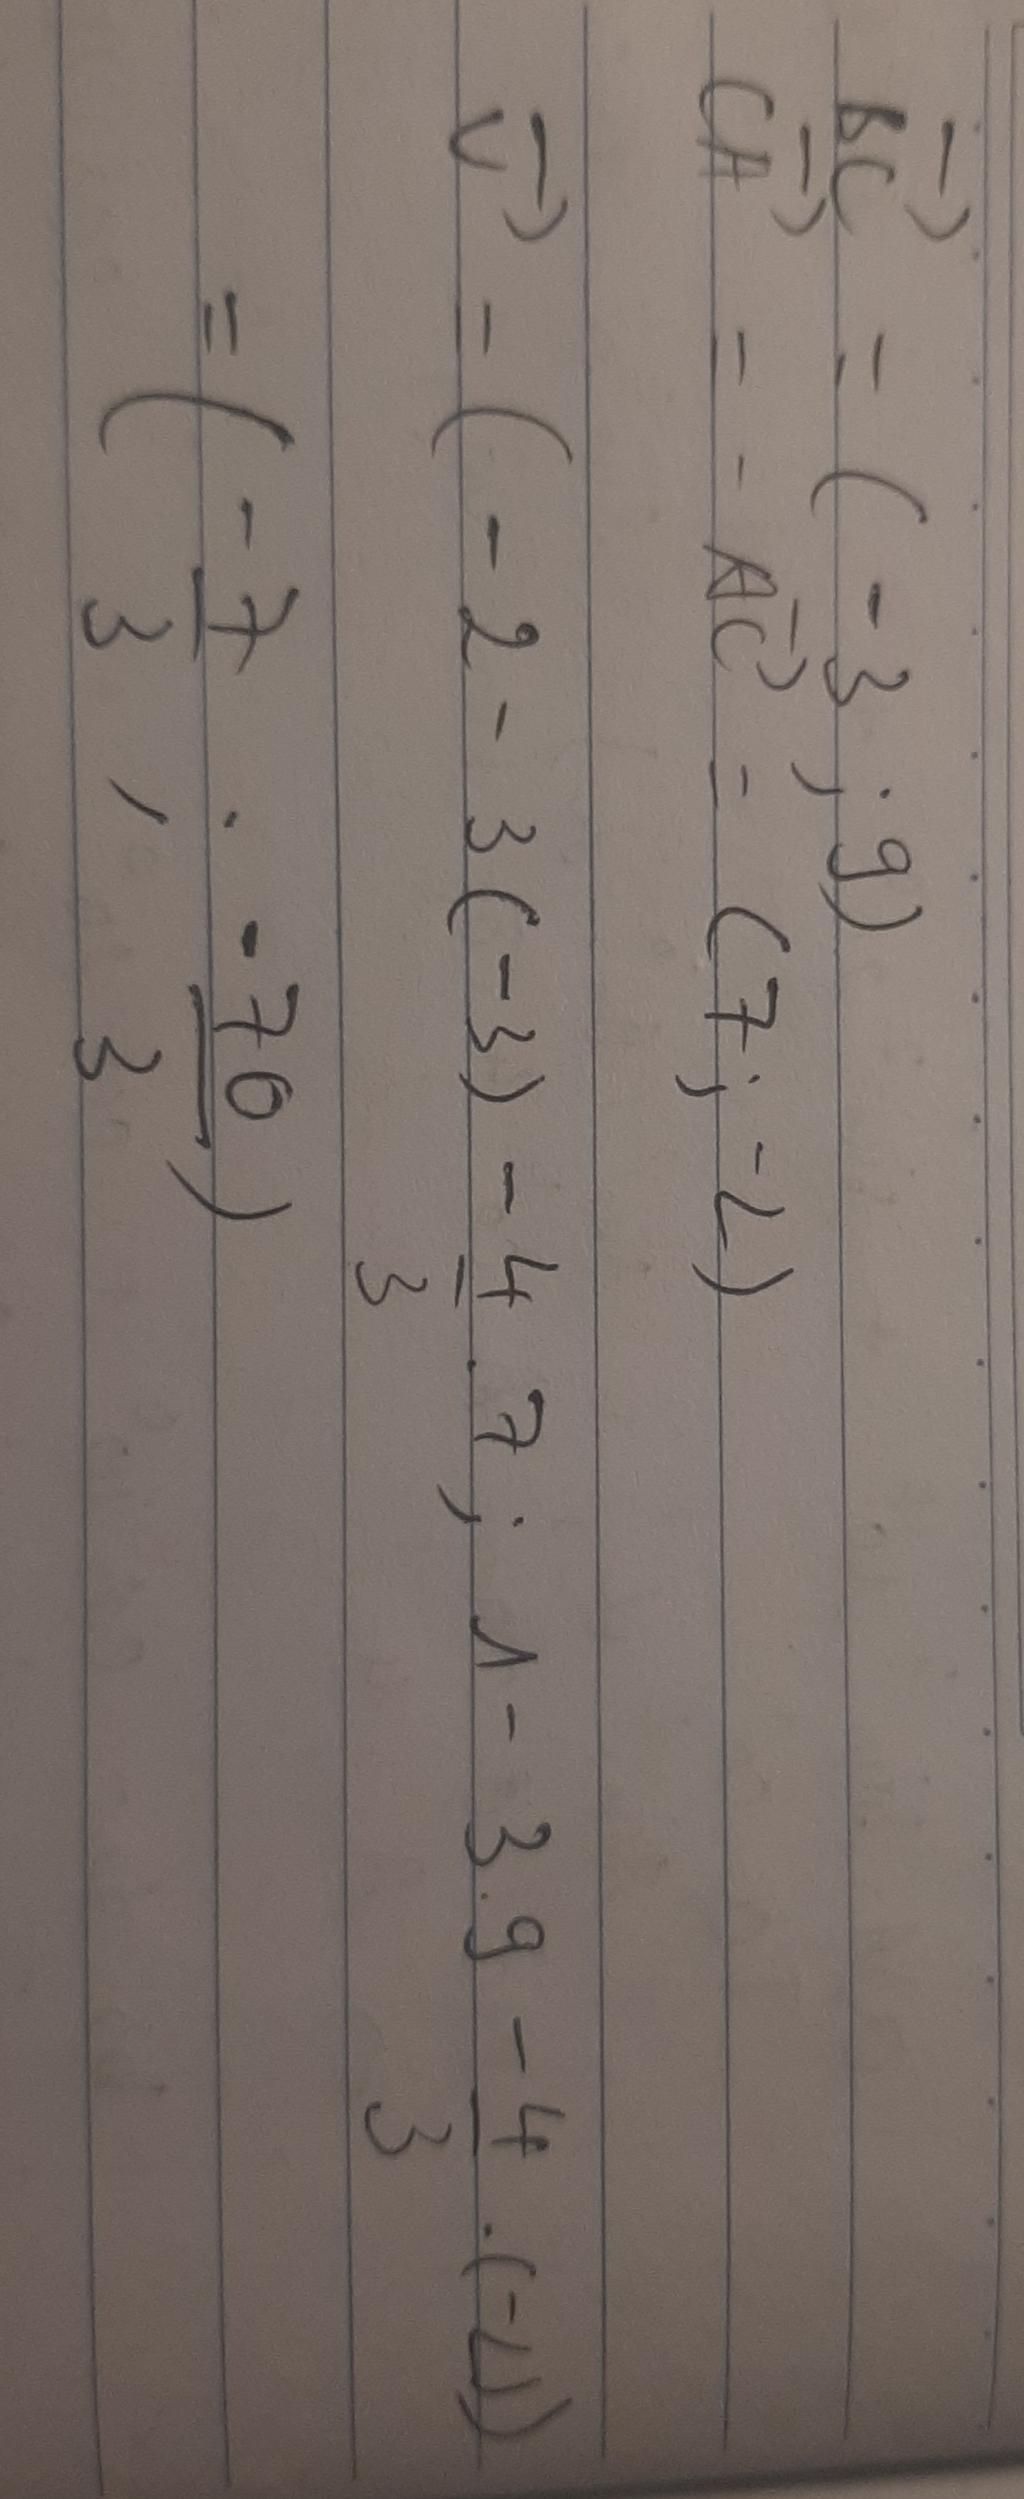 BC→ = (-3 ; 9)
CA→ = - AC→ = (7 ; -4)
v→ = (-2 - 3(-3) - 4/3 . 7 ; 1 - 3.9 - 4/3 . (-4))
= (-7/3 ; -76/3)